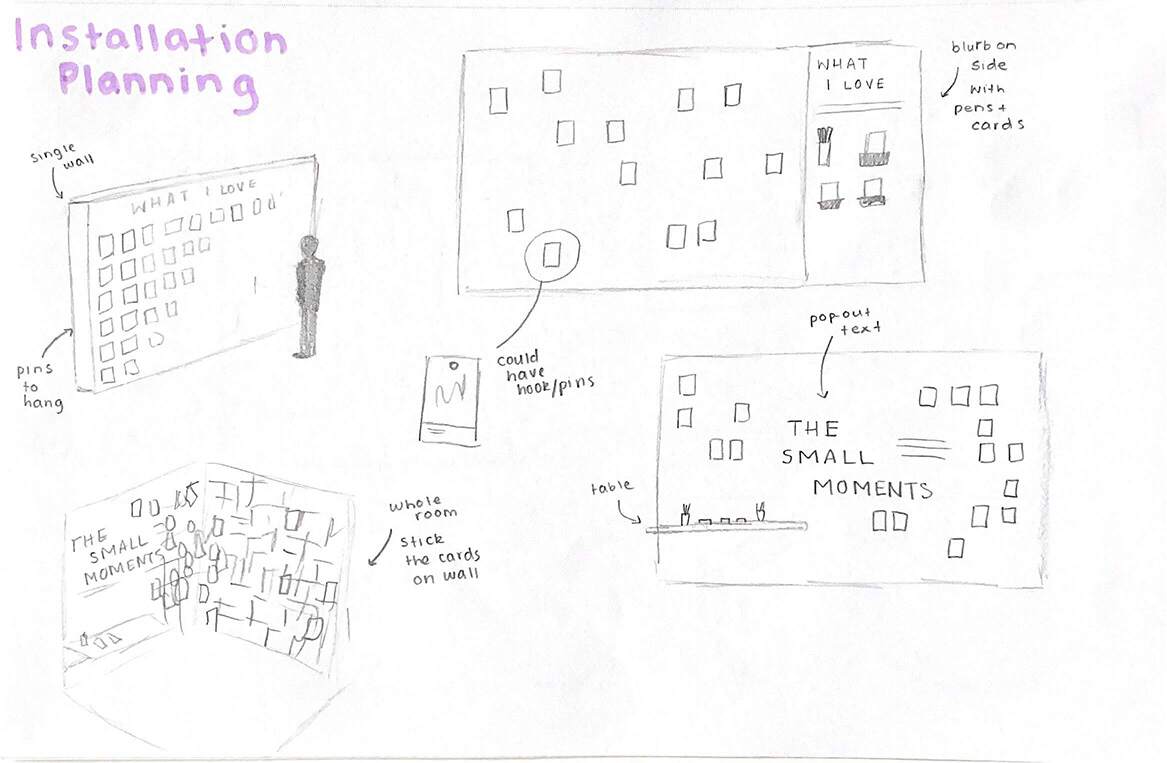 Installation
Planning
single
wall
WHAT I LOVE
pins
to
hang
WHAT
I LOVE
blurb on
side
with
pens +
cards
could
have
hook/pins
pop-out
text
THE
SMALL
MOMENTS
table
THE
SMALL
MOMENTS
whole
room
stick
the cards
on wall